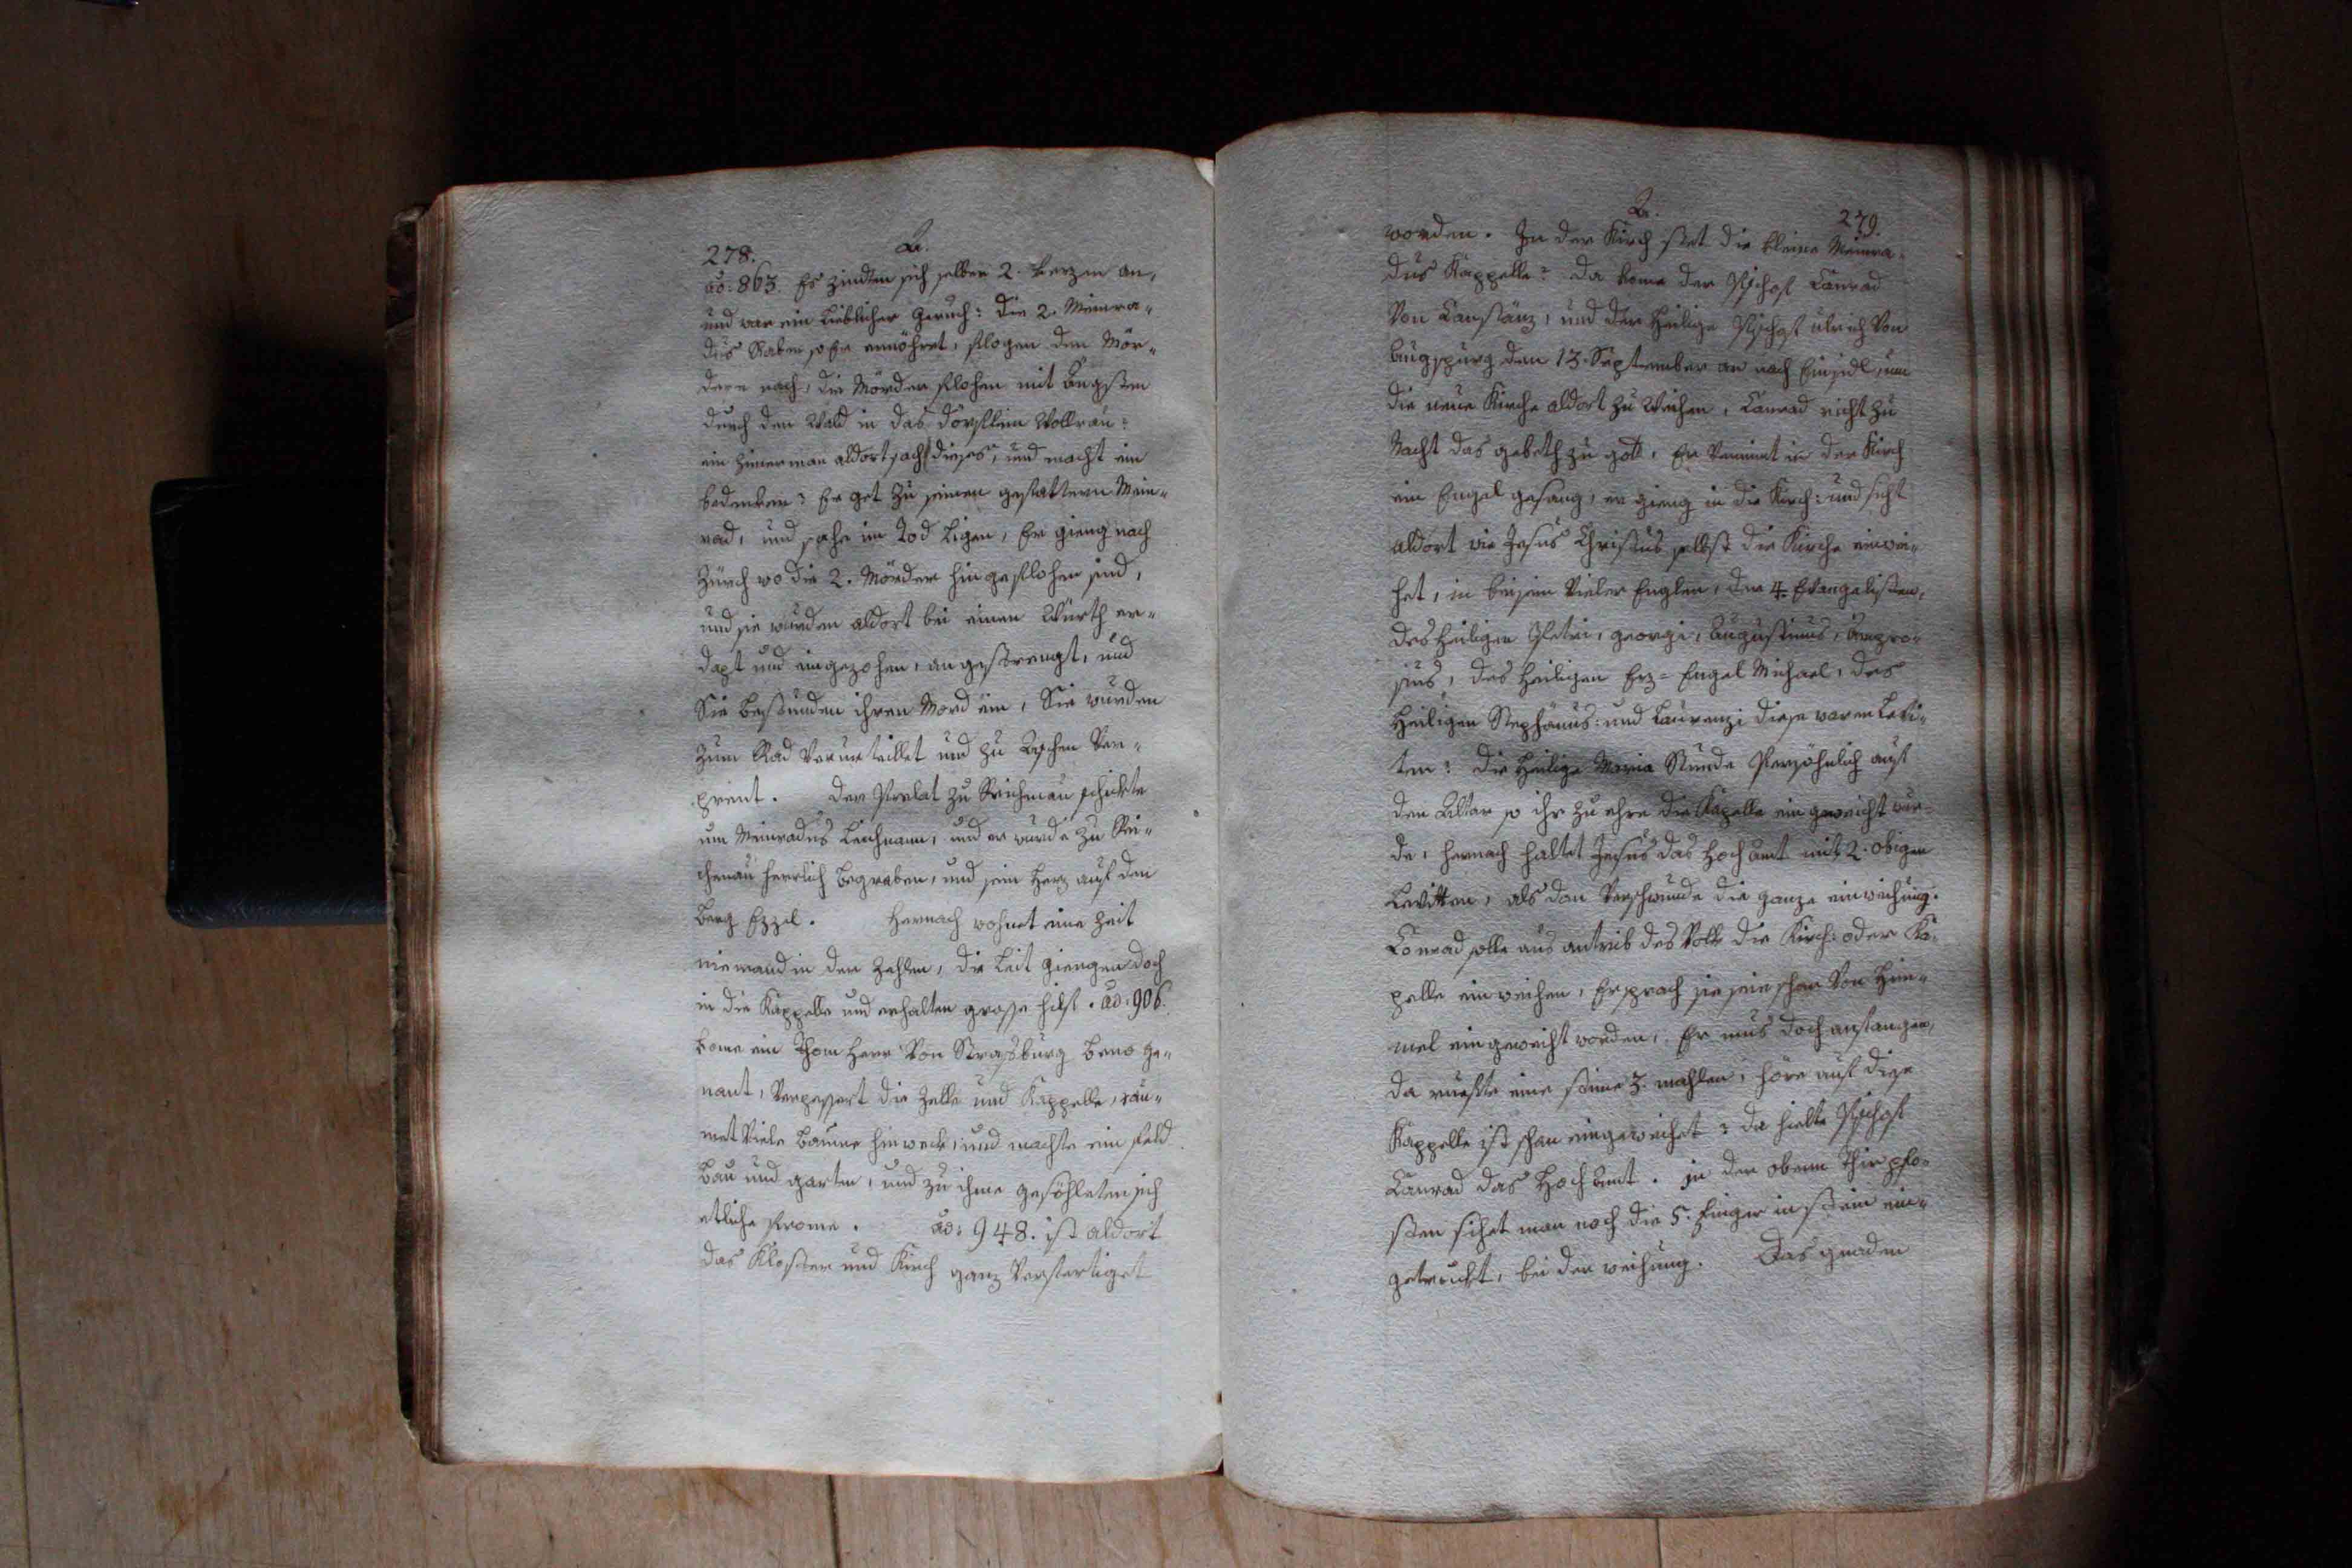 278.
ao: 863. Es zindten sich selber 2. kerzen an,
und war ein lieblicher geruch: die 2. Meinra-
dus Raben so Er ernöhret, flogen den Mör-
dern nach, die Mörder flohen mit ängsten
durch den Wald in das dörflein Wollrau:
ein Zimerman aldort sach dieses, und macht ein
bedenken: Er get zu seinen gefattern Mein-
rad, und sahe im Tod ligen, Er gieng nach
Zürch wo die 2. Mörder hin geflohen sind,
und sie wurden aldort bei einen Würth er-
dapt und eingezohen, angestrengt, und
Sie bestunden ihren Mord ein, Sie wurden
zum Rad verurteillet und zu Aschen ver-
prent. Der Prelat zu Reichenau schickte
um Meinradus Leichnam, und er wurde zu Rei-
chenau herrlich begraben, und sein Herz auf den
berg Ezzel. Hernach wohnet eine Zeit
niemand in der Zehlen, die Leit giengen doch
in die Kappelle und erhalten grosse hilf. ao: 906.
kome ein Thom Herr von Strasburg Beno ge-
nant, verpessert die Zelle und Kappelle, rau-
met viele baume hinweck, und machte ein feld
bau und garten, und zu ihme gesöhleten sich
etliche frome. ao: 948. ist aldort
das Kloster und Kirch ganz verfertiget
279.
worden. In der Kirch stet die kleine Meinra-
dus Kappelle: da kome der Pischof Conrad
von Constanz, und der heilige Pischof ulrich von
augspurg den 13. September an nach Einsidl, um
die neue Kirche aldort zu weihen, Conrad richt zu
Nacht das gebeth zu gott, Er vernimt in der Kirch
ein Engel gesang, er gieng in die Kirch: und sicht
aldort wie Jesus Christus selbst die Kirche einwei-
het, in beisein vieler Englen, der 4. Evangelisten,
des heiligen Petri, georgi, augustinus, ampro-
sius, des heiligen Erz-Engel Michael, des
heiligen Stephanus: und Laurenzi diese waren Levi-
ten: die heilige Maria Stunde Persöhnlich auf
den Altar so ihr zu ehre die Kapelle ein geweicht wur-
de, hernach haltet Jesus das hoch amt mit 2. obigen
Levitten, als dan verschwunde die ganze einweihung.
Conrad solle aus antrib des Volk die Kirch: oder Ka-
pelle einweihen, Er sprach sie seie schon von him-
mel ein geweicht worden, Er mus doch anfangen,
da rueffte eine stime 3. mahlen, höre auf diese
Kappelle ist schon eingeweichet: da hielte Pischof
Conrad das Hoch amt. in der obern Thir pfo-
sten sihet man noch die 5. finger in stein ein-
getruckt, bei der weihung. Das gnaden